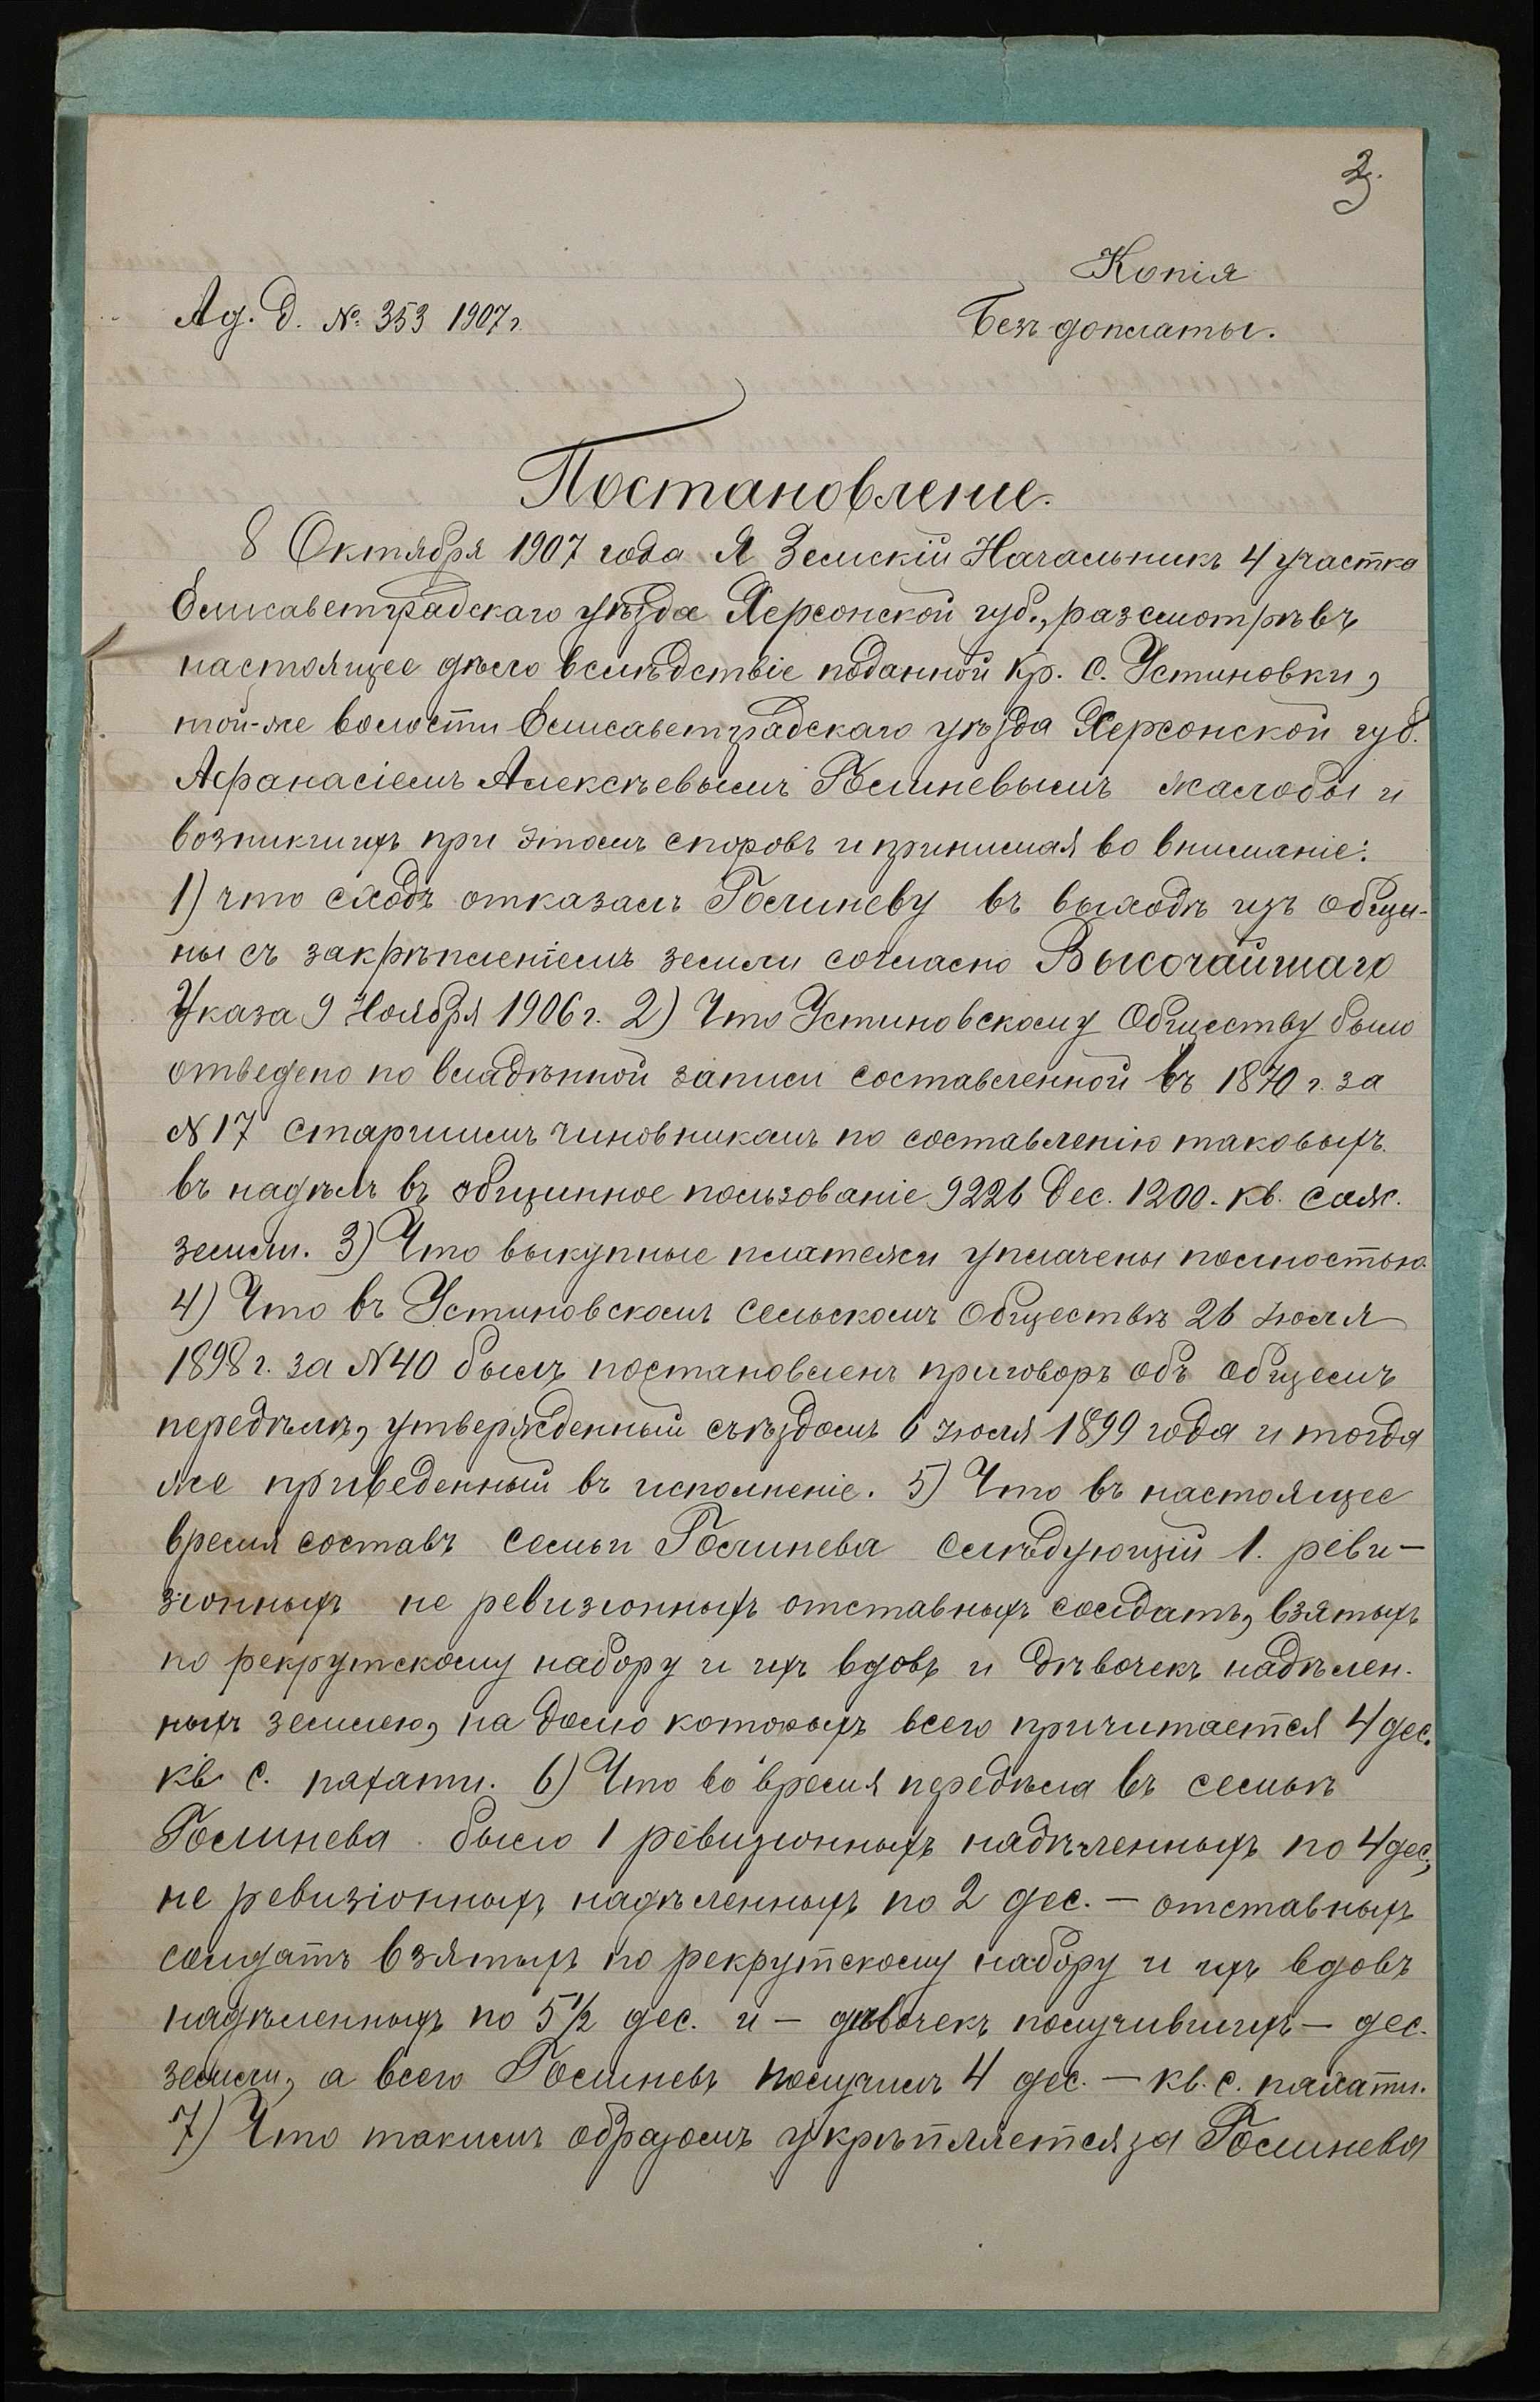 3.
Копія
Ад. д. №. 353 1907 г.
Безъ доплаты.
Постановленіе.
8 Октября 1907 года Я Земскій Начальникъ 4 участка
Елисаветградскаго уѣзда Херсонской губ., разсмотрѣвъ
настоящее дѣло вслѣдствіе поданной кр. с. Устиновки,
той-же волости Елисаветградскаго уѣзда Херсонской губ.
Афанасіемъ Алексѣевымъ жалобы и
возникшихъ при этомъ споровъ и принимая во вниманіе:
1) что сходъ отказалъ въ выходѣ изъ общи-
ны съ закрѣпленіемъ земли согласно Высочайшаго
Указа 9 Ноября 1906 г. 2) Что Устиновскому Обществу было
отведено по владѣнной записи составленной въ 1870 г. за
№ 17 старшимъ чиновникомъ по составленію таковыхъ
въ надѣлъ въ общинное пользованіе 9226 дес. 1200. кв. саж.
земли. 3) Что выкупные платежи уплачены полностью
4) Что въ Устиновскомъ сельскомъ обществѣ 26 іюля
1898 г. за № 40 былъ постановленъ приговоръ объ общемъ
передѣлѣ, утвержденный съѣздомъ 6 іюля 1899 года и тогда
же приведенный въ исполненіе. 5) Что въ настоящее
время составъ семьи слѣдующій 1. реви-
зіонныхъ не ревизіонныхъ отставныхъ солдатъ, взятыхъ
по рекрутскому набору и ихъ вдовъ и дѣвочекъ надѣлен-
ныхъ землею, на долю которыхъ всего причитается 4 дес.
кв с. пахати. 6) Что во время передѣла въ семьѣ
было 1 ревизіонныхъ надѣленныхъ по 4 дес.,
не ревизіонныхъ надѣленныхъ по 2 дес. — отставныхъ
солдатъ взятыхъ по рекрутскому набору и ихъ вдовъ
надѣленныхъ по 5 ½ дес. и — дѣвочекъ получившихъ — дес.
земли, а всего получилъ 4 дес. — кв. с. пахати.
7) Что такимъ образомъ укрѣпляется за